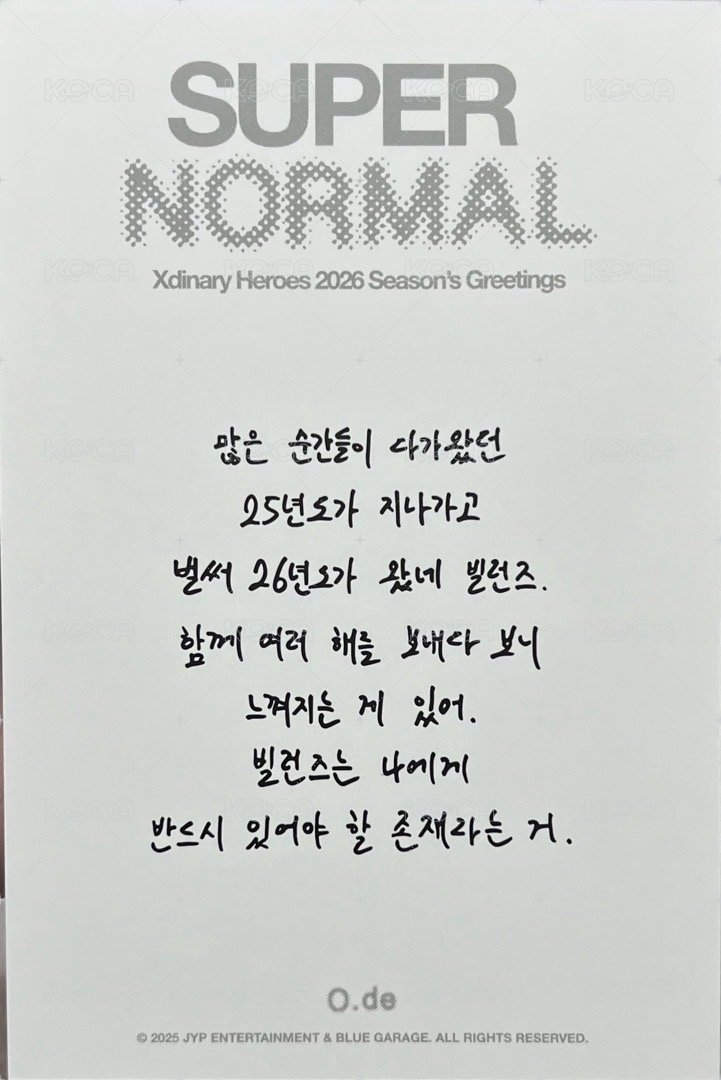 SUPER
NORMAL
Xdinary Heroes 2026 Season's Greetings
많은 순간들이 다가왔던
25년도가 지나가고
벌써 26년도가 왔네 빌런즈.
함께 여러 해를 보내다 보니
느껴지는 게 있어.
빌런즈는 나에게
반드시 있어야 할 존재라는 거.
O.de
© 2025 JYP ENTERTAINMENT & BLUE GARAGE. ALL RIGHTS RESERVED.